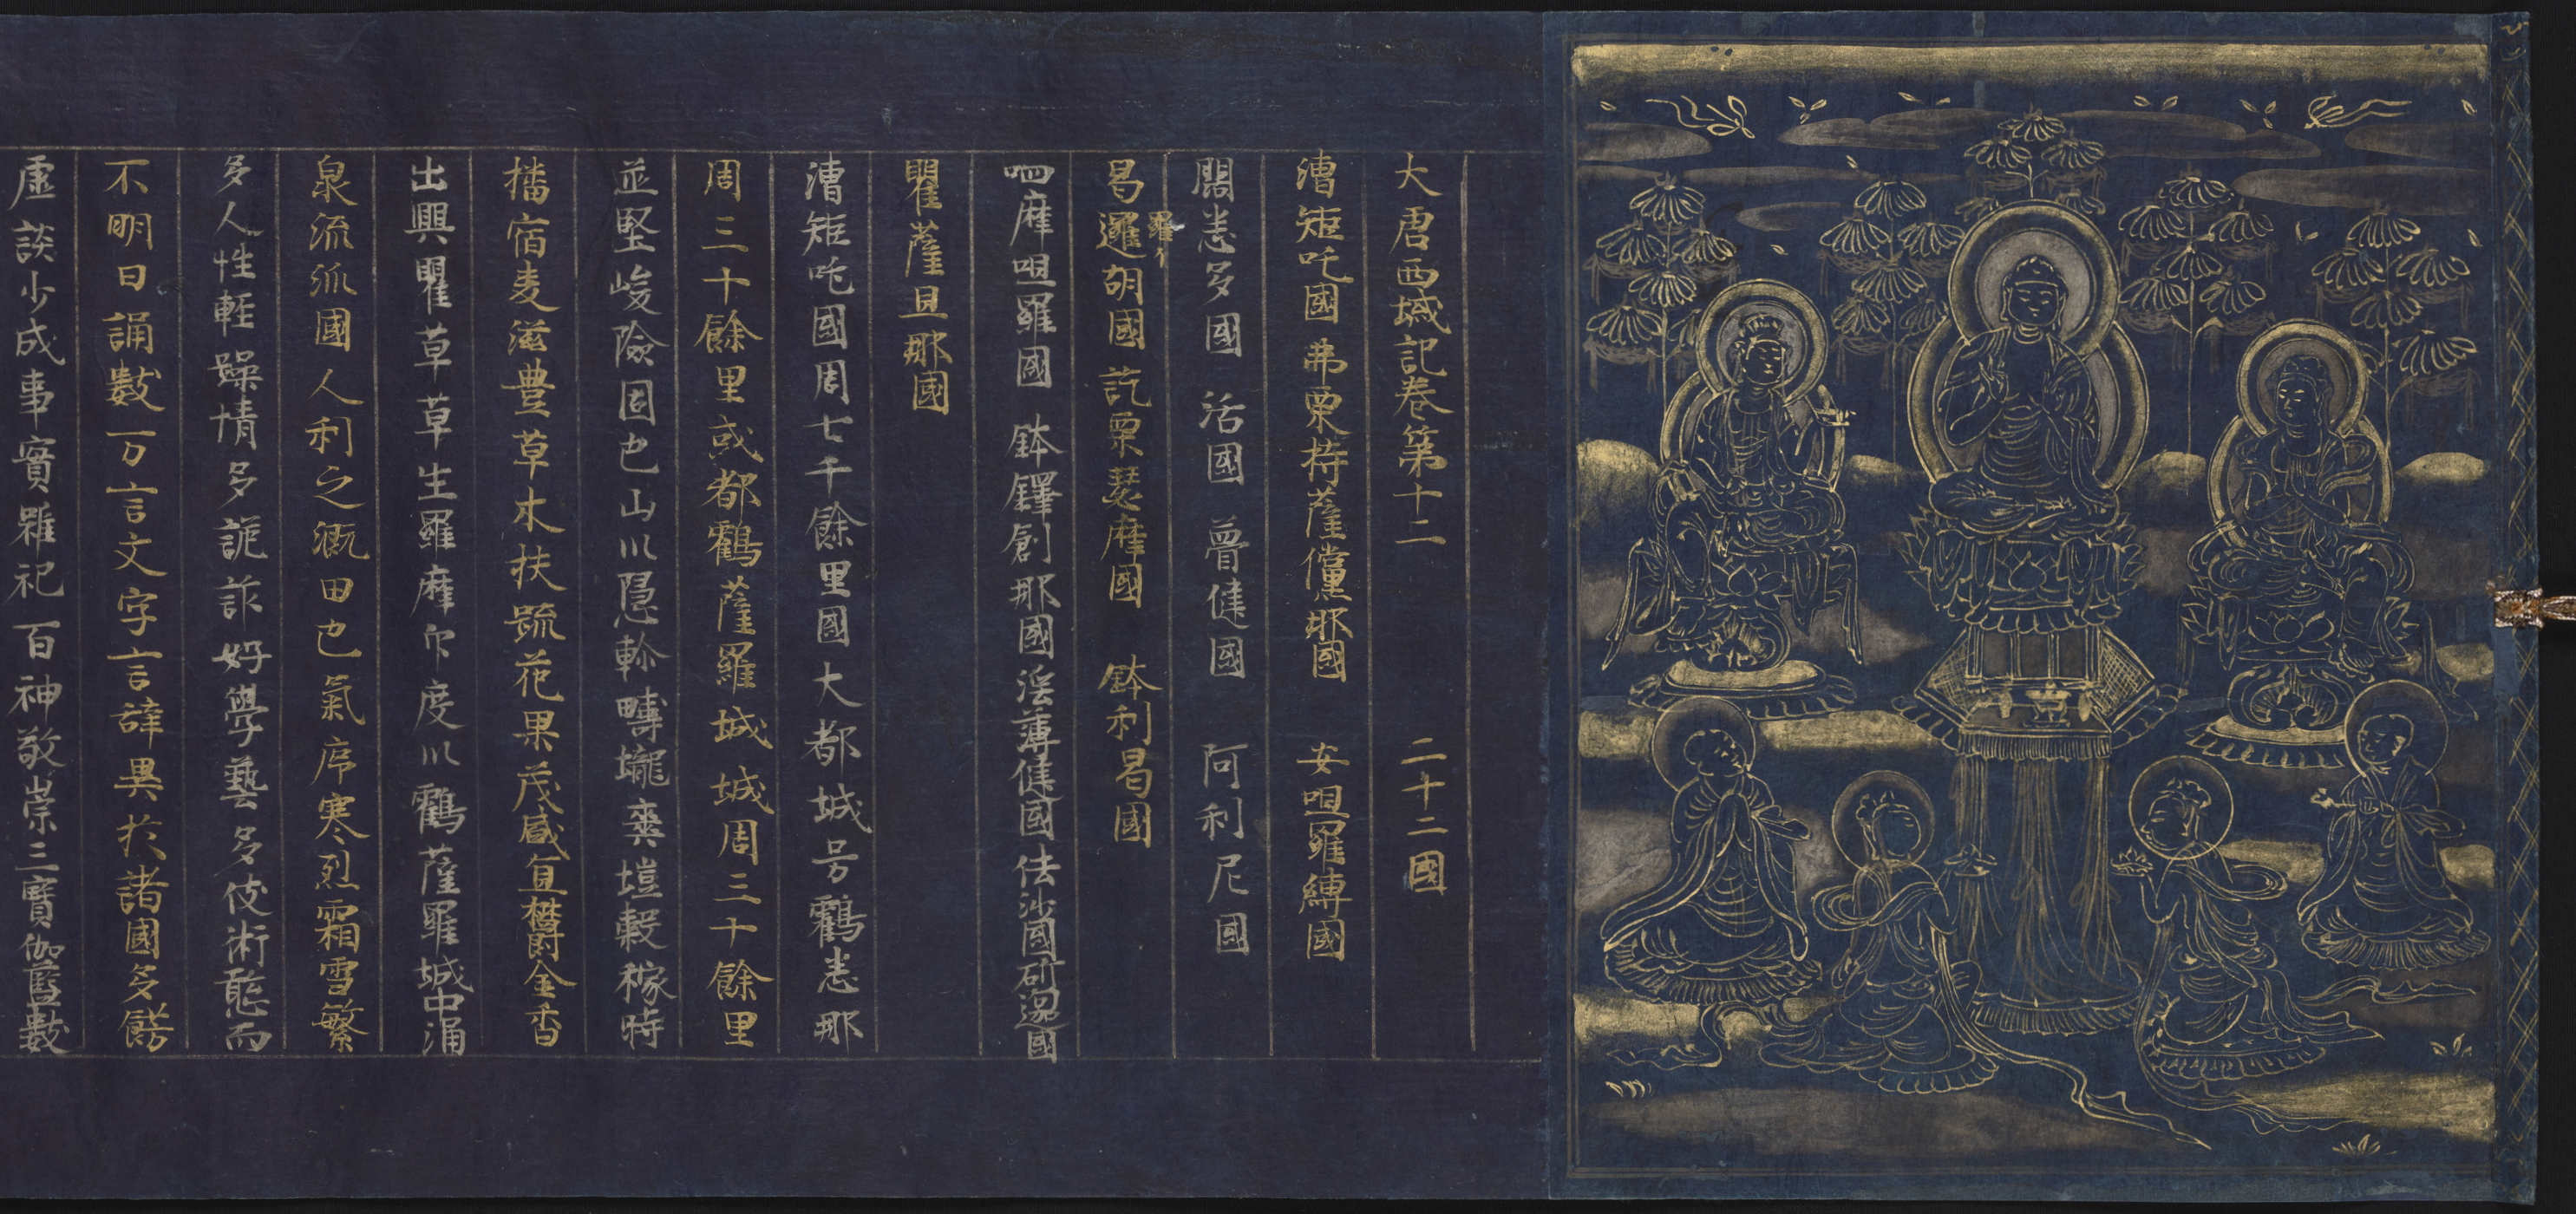 大唐西域記卷第十二　二十二國
漕矩吒國　弗栗恃薩儻那國　安呾羅縛國
闊悉多國　活國　曾健國　阿利尼國
曷邏胡國　訖栗瑟摩國　鉢利曷國
呬摩呾羅國　鉢鐸創那國　淫薄健國　佉沙國　斫迦國
瞿薩旦那國
漕矩吒國周七千餘里國大都城号鶴悉那
周三十餘里或都鶴薩羅城城周三十餘里
並堅峻險固也山川隱軫疇壠爽塏穀稼時
播宿麦滋豊草木扶疏花果茂盛宜欝金香
出興瞿草草生羅摩尒度川鶴薩羅城中涌
泉流派國人利之漑田也氣序寒烈霜雪繁
多人性輕躁情多詭詐好學藝多伎術聡而
不明日誦數万言文字言辝異於諸國多餝
虛談少成事實雖祀百神敬崇三寶伽藍數